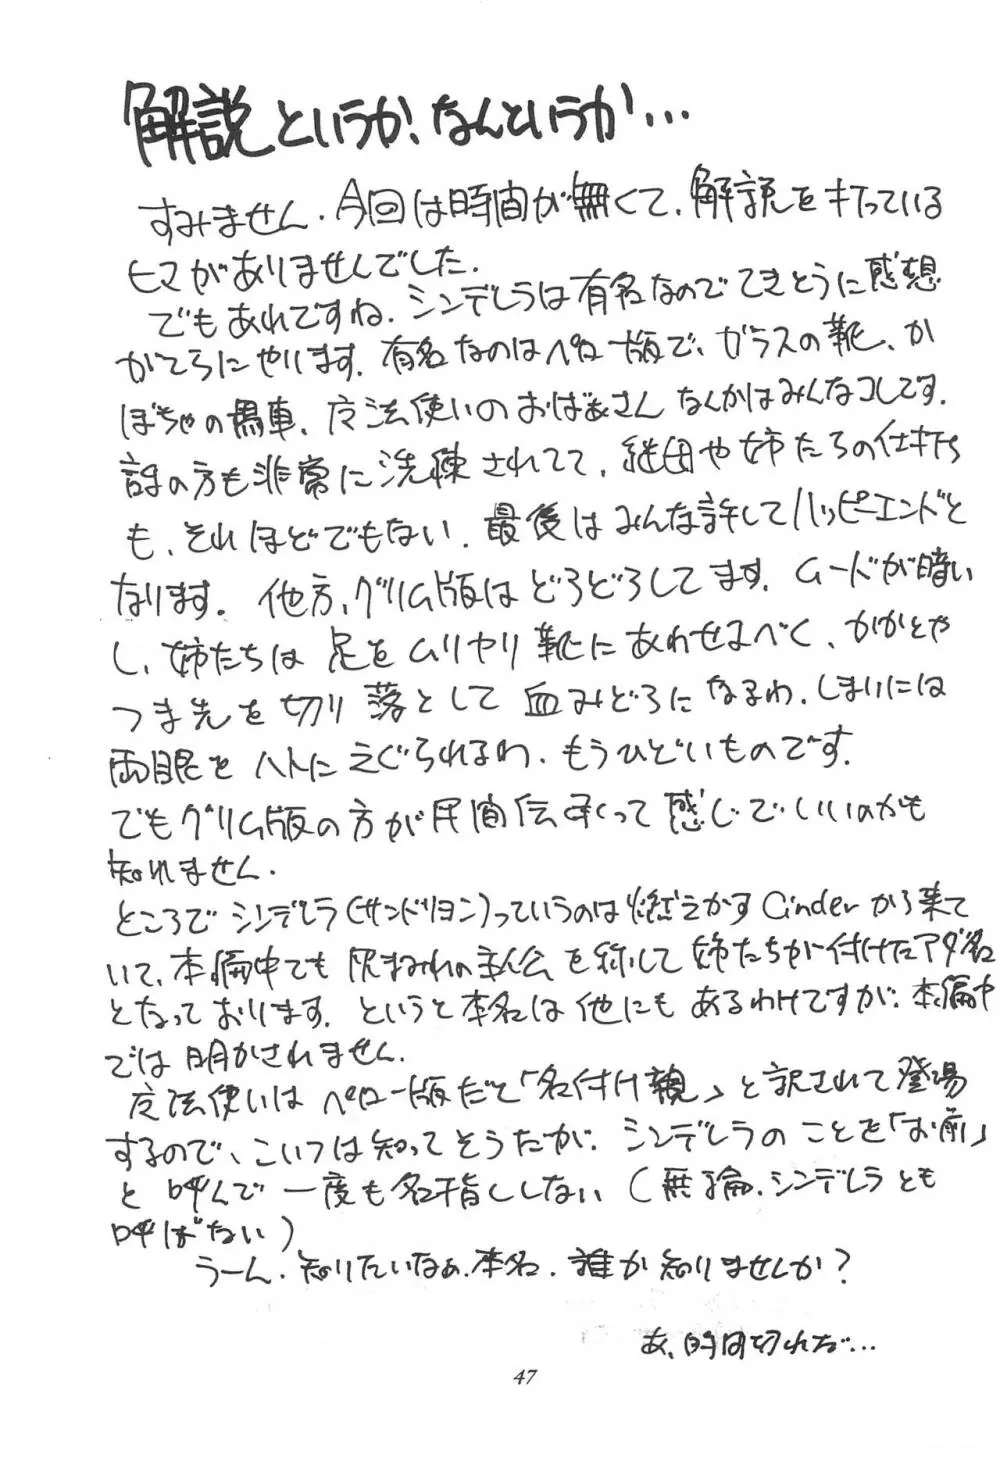 解説というか、なんというか…
すみません。今回は時間が無くて、解説を打っている
ヒマがありませんでした。
でもあれですね。シンデレラは有名なのでてきとうに感想
がてらにやります。有名なのはペロー版で、ガラスの靴、か
ぼちゃの馬車、魔法使いのおばあさんなんかはみんなコレです。
話の方も非常に洗練されてて、継母や姉たちの仕打ち
も、それほどでもない。最後はみんな許してハッピーエンドと
なります。他方、グリム版はどろどろしてます。ムードが暗い
し、姉たちは足をムリヤリ靴にあわせるべく、かかとや
つま先を切り落として血みどろになるわ、しまいには
両眼をハトにえぐられるわ、もうひどいものです。
でもグリム版の方が民間伝承って感じでいいのかも
知れません。
ところでシンデレラ(サンドリヨン)っていうのは燃えかすCinderから来て
いて、本編中でも灰まみれの主人公を称して姉たちが付けたアダ名
となっております。というと本名は他にもあるわけですが、本編中
では明かされません。
魔法使いはペロー版だと「名付け親」と訳されて登場
するので、こいつは知ってそうだが、シンデレラのことを「お前」
と呼んで一度も名指ししない(無論、シンデレラとも
呼ばない)
うーん、知りたいなぁ、本名。誰か知りませんか?
あ、時間切れだ…
47